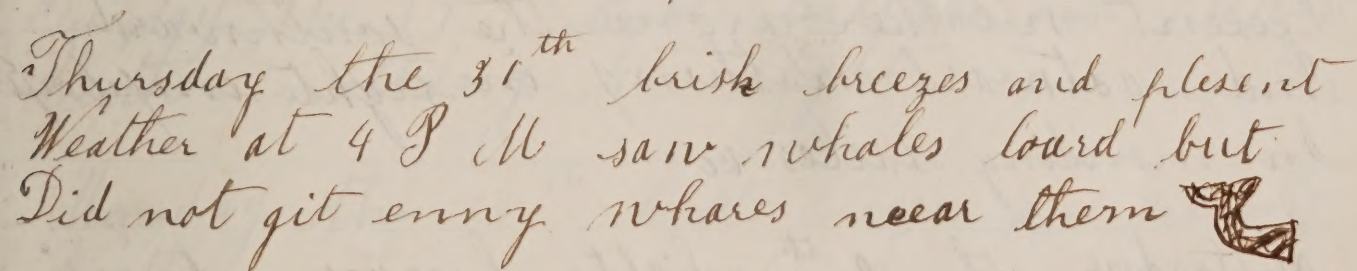 Thursday the 31th brisk breezes and plesent
Weather at 4 P M saw whales loard but
Did not git enny whares neear them